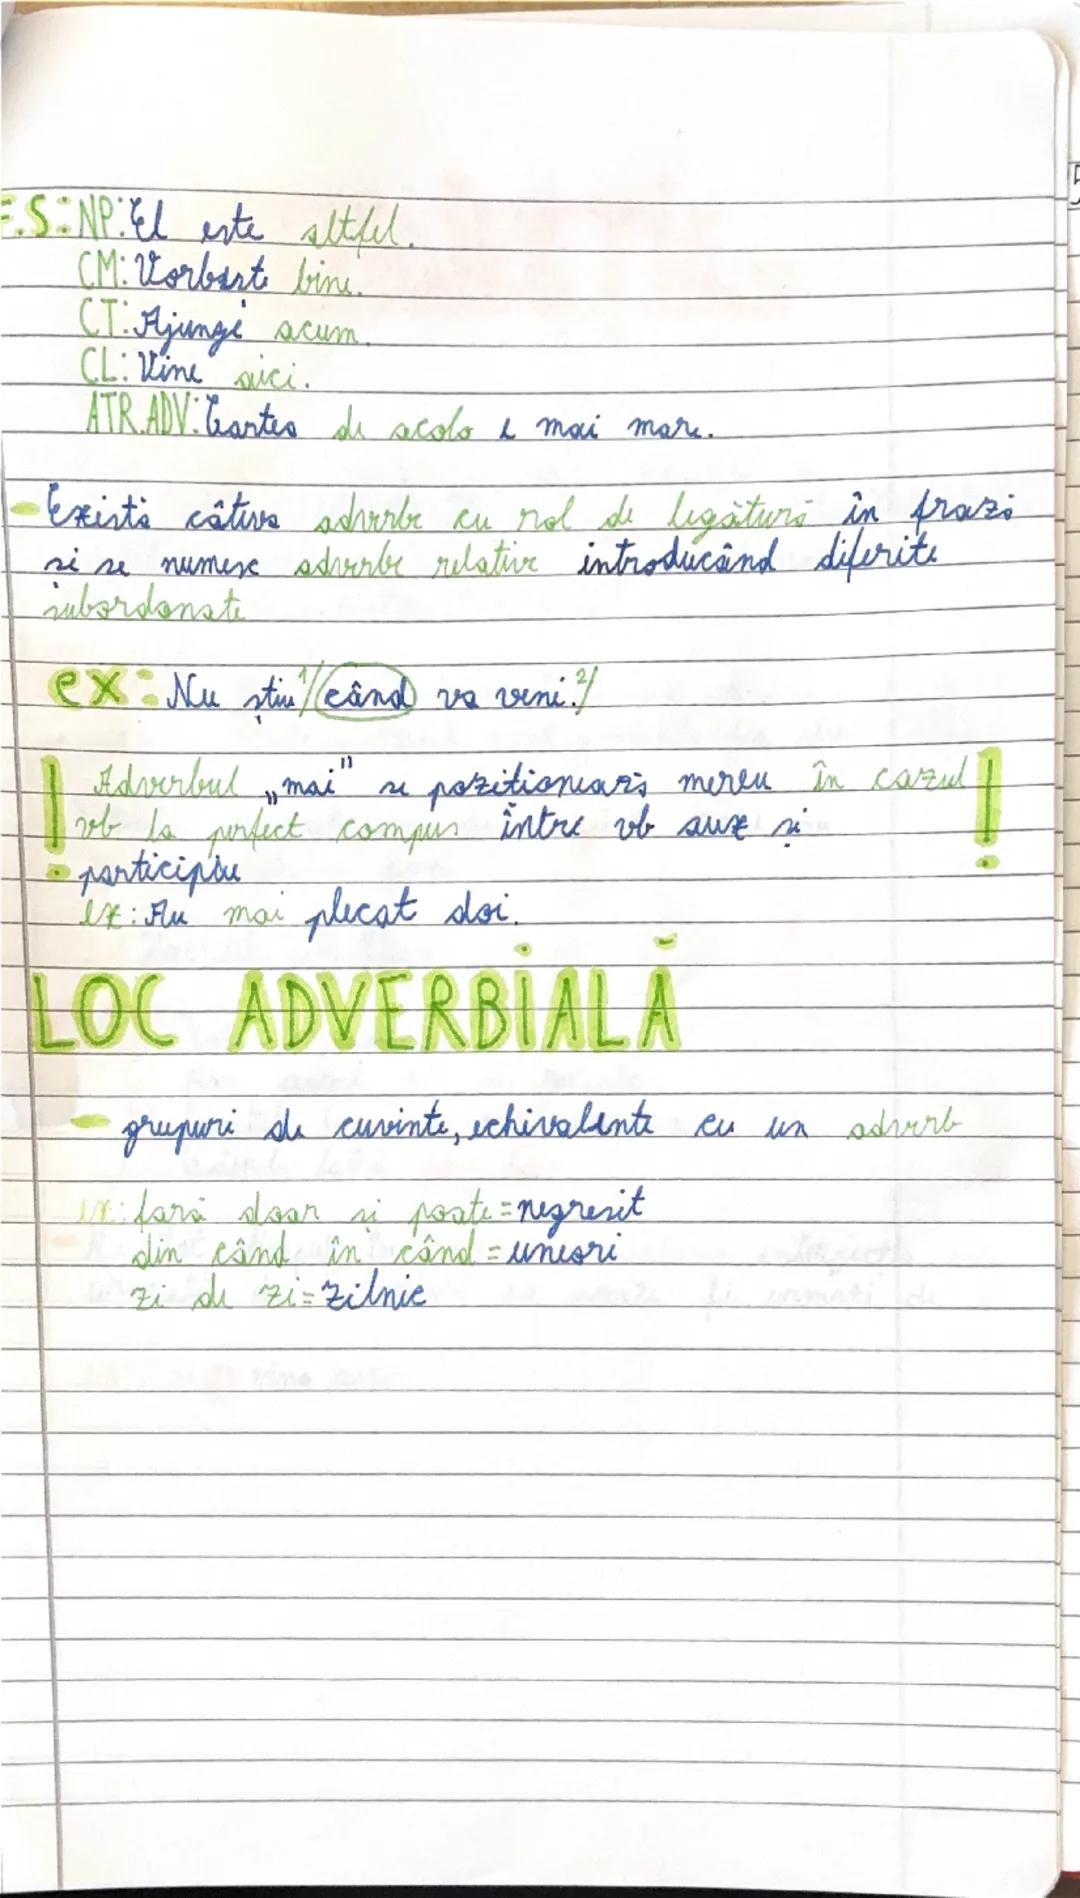 F.S: NP: El este altfel.
CM: Vorbesc bine.
CT: Ajungi acum.
CL: Vine aici.
ATR.ADV: Cartea de acolo e mai mare.
- Există câteva adverbe cu rol de legătură în frază
si se numesc adverbe relative introducând diferite
subordonate
ex: Nu știu 1/ când va veni. 2/
! Adverbul „mai" se pozitionează mereu în cazul !
vb la perfect compus între vb aux si
participiu
ex: Au mai plecat doi.
LOC ADVERBIALĂ
- grupuri de cuvinte, echivalente cu un adverb
ex: fară doar si poate = negresit
din când în când = uneori
zi de zi = zilnic